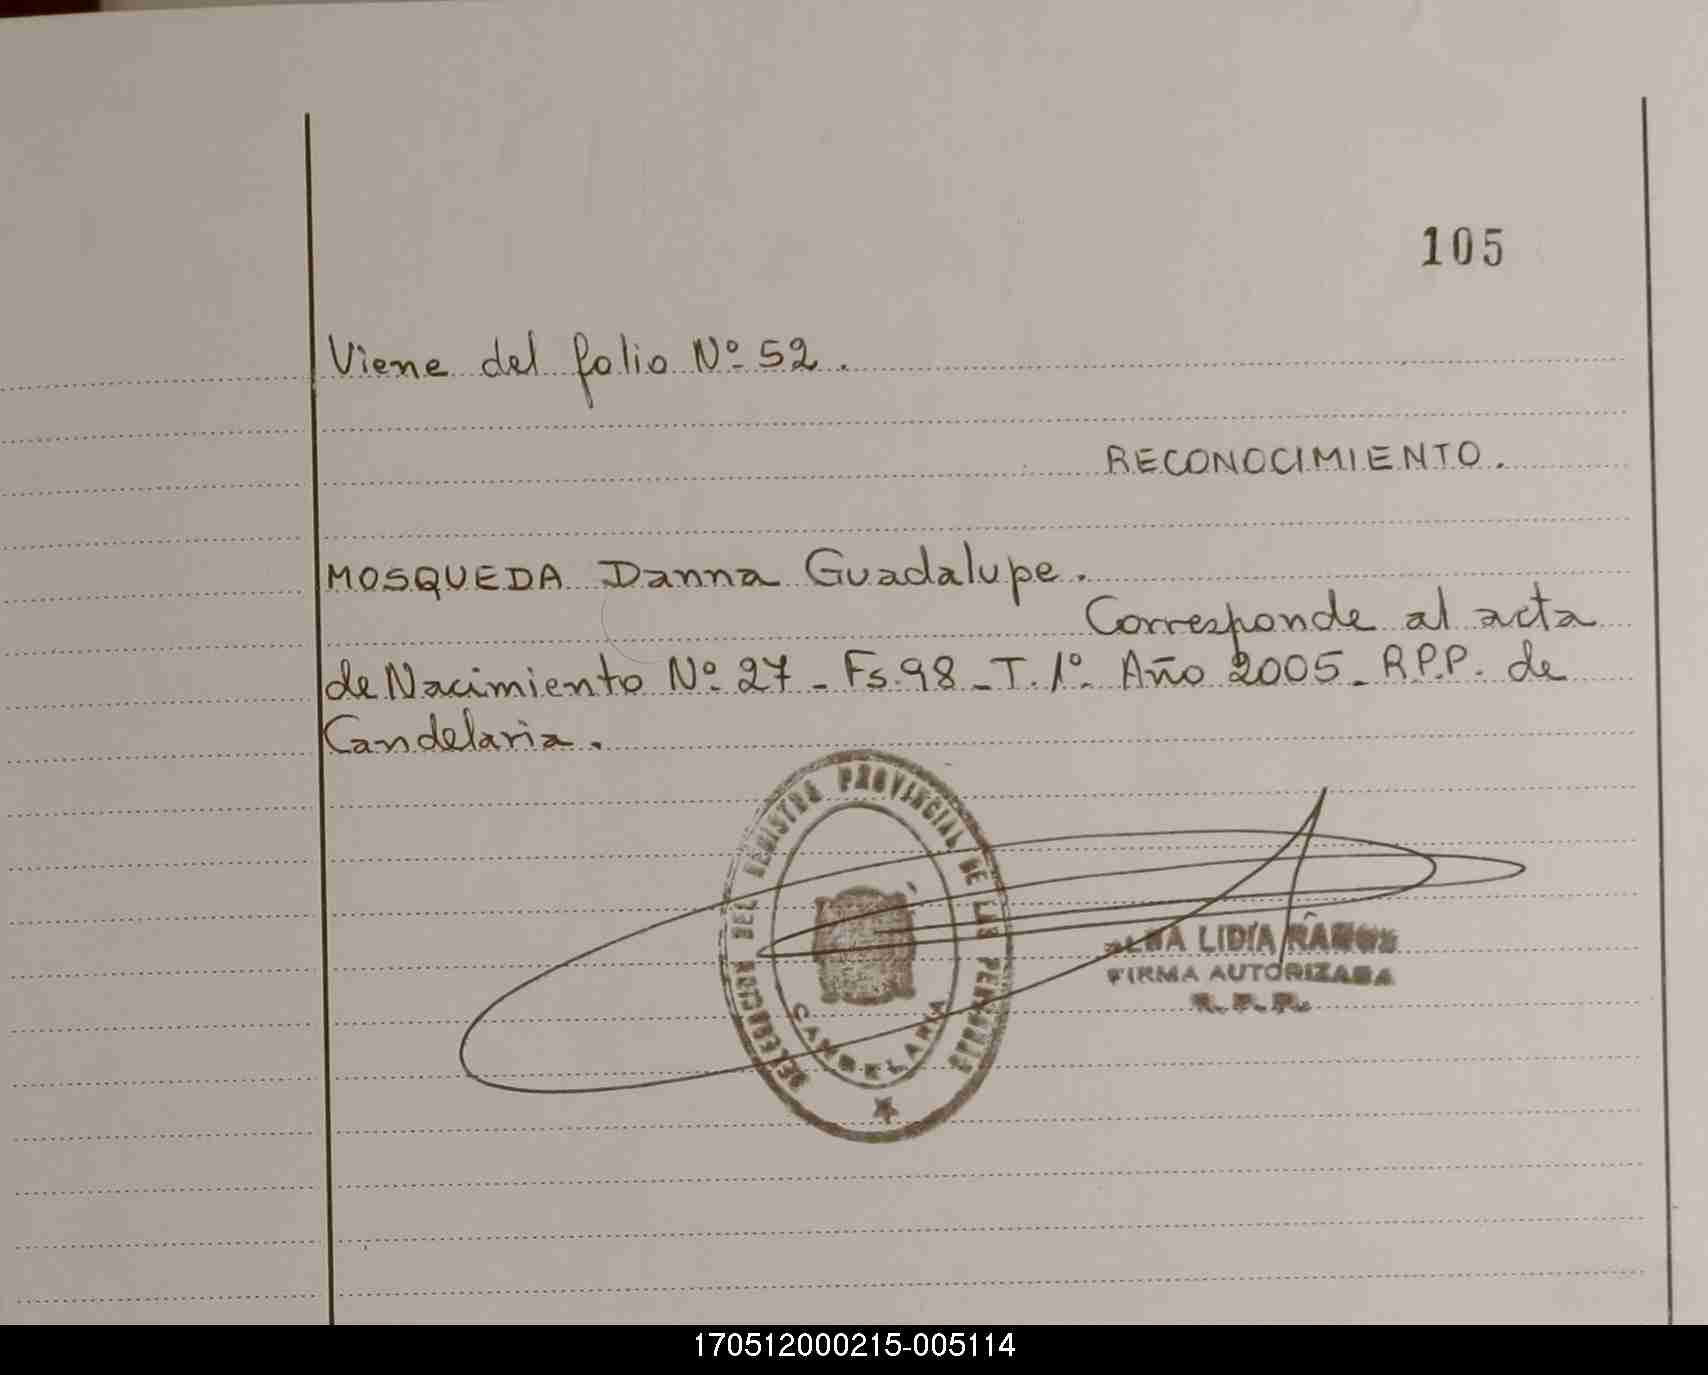 105
Viene del folio Nº 52.
RECONOCIMIENTO.
MOSQUEDA Danna Guadalupe.
Corresponde al acta
de Nacimiento Nº 27 - Fs. 98 - T. 1º. Año 2005 - R.P.P. de
Candelaria.
DELEGACION DEL REGISTRO PROVINCIAL DE LAS PERSONAS
CANDELARIA
LIDIA
FIRMA AUTORIZADA
R. P. P.
170512000215-005114